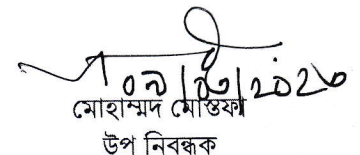 ০৯/০৩/২০২৩
মোহাম্মদ মোস্তফা
উপ নিবন্ধক